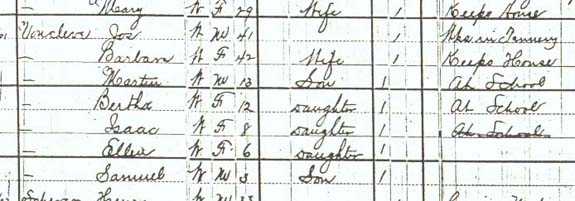 — Mary W F 29 Wife 1 Keeps House
Vancleve Jos W M 41 1 Wks in Tannery
— Barbara W F 42 Wife 1 Keeps House
— Martin W M 13 Son 1 At School
— Bertha W F 12 daughter 1 At School
— Isaac W F 8 daughter 1 At School
— Ellen W F 6 daughter 1
— Samuel W M 3 Son 1